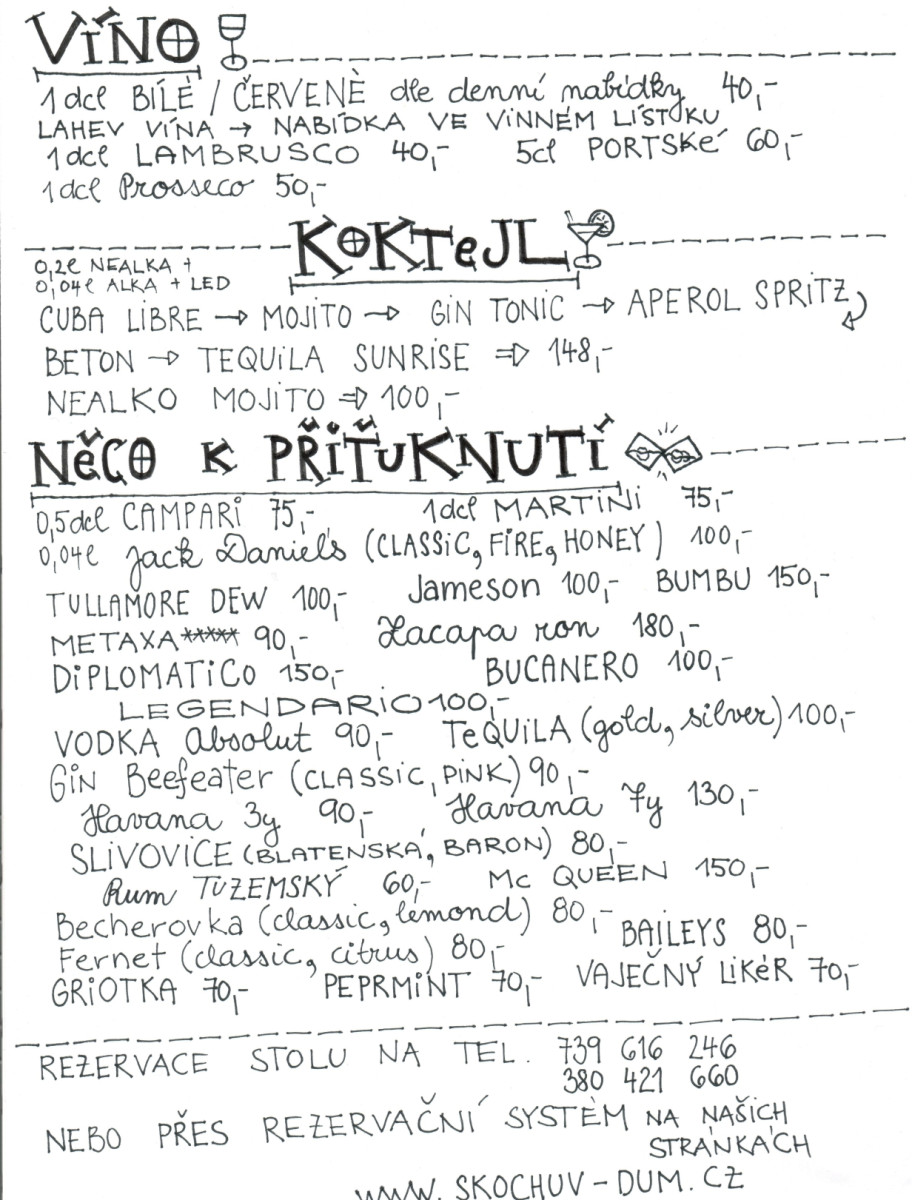 VÍNO
1dcl BÍLÉ / ČERVENÉ dle denní nabídky 40,-
LAHEV VÍNA → NABÍDKA VE VINNÉM LÍSTOKU
1dcl LAMBRUSCO 40,- 5cl PORTSKé 60,-
1dcl Prosseco 50,-
KOKTeJL
0,2l NEALKA +
0,04l ALKA + LED
CUBA LiBRE → MOJiTO → GiN TONiC → APEROL SPRiTZ
BETON → TEQUiLA SUNRiSE ⇒ 148,-
NEALKO MOJiTO ⇒ 100,-
NěCO K PŘÍŤUKNUTÍ
0,5dcl CAMPARi 75,- 1dcl MARTiNi 75,-
0,04l Jack Daniel's (CLASSiC, FiRE, HONEY) 100,-
TULLAMORE DEW 100,- Jameson 100,- BUMBU 150,-
METAXA***** 90,- Zacapa ron 180,-
DiPLOMATiCO 150,- BUCANERO 100,-
LEGENDARiO 100,-
VODKA Absolut 90,- TeQUiLA (gold, silver) 100,-
GiN Beefeater (CLASSiC, PiNK) 90,-
Havana 3y 90,- Havana 7y 130,-
SLiVOViCE (BLATENSKÁ, BARON) 80,-
Rum TUZEMSKÝ 60,- Mc QUEEN 150,-
Becherovka (classic, lemond) 80,-
Fernet (classic, citrus) 80,- BAiLEYS 80,-
GRiOTKA 70,- PEPRMiNT 70,- VAJEČNÝ LiKéR 70,-
REZERVACE STOLU NA TEL. 739 616 246
380 421 660
NEBO PŘES REZERVAČNÍ SYSTÉM NA NAŠiCH
STRÁNKÁCH
WWW.SKOCHUV-DUM.CZ